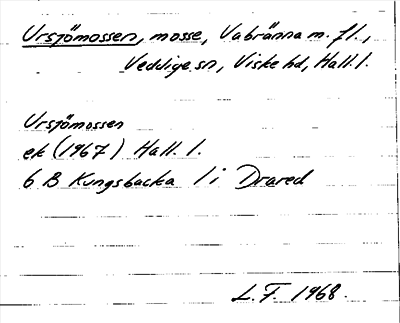 Ursjömossen, mosse, Vabränna m. fl.,
Veddige sn, Viske hd, Hall. l.
Ursjömossen
ek (1967) Hall. l.
6 B Kungsbacka 1 i Drared
L.F. 1968.